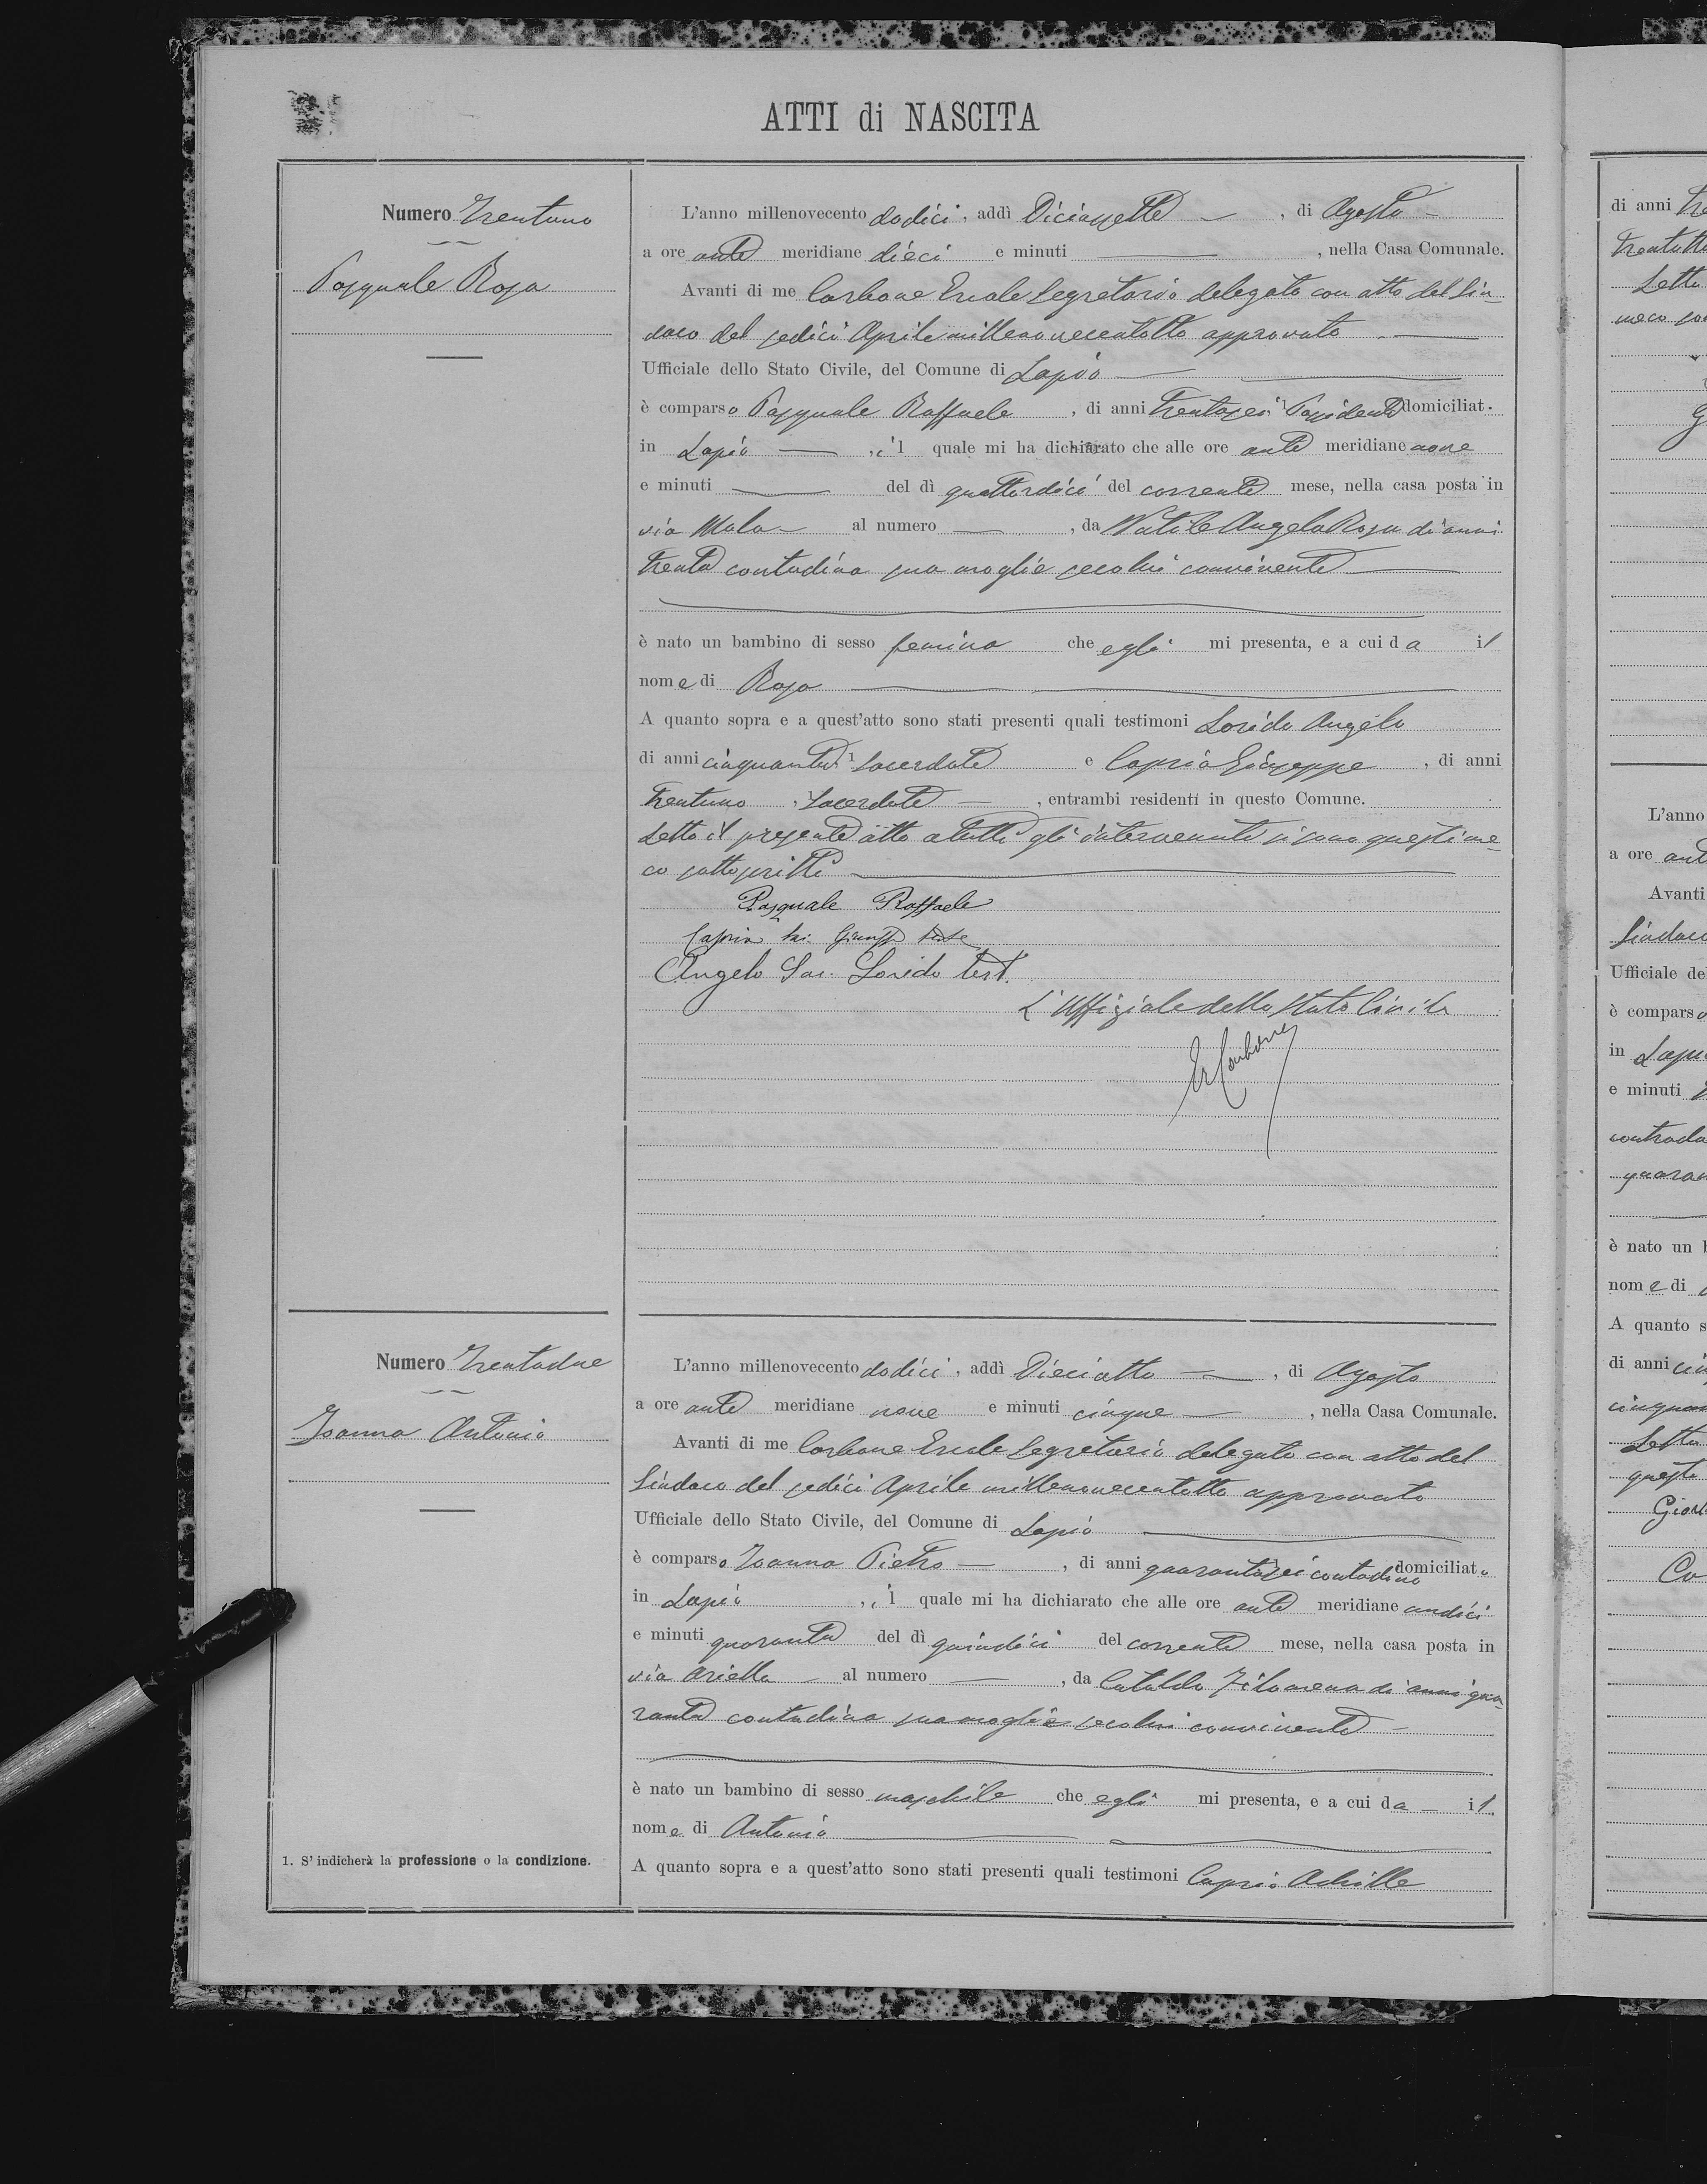 ATTI di NASCITA
Numero Trentuno
Pasquale Rosa
L'anno millenovecento dodici, addì Diciassette, di Agosto
a ore ante meridiane dieci e minuti, nella Casa Comunale.
Avanti di me Carbone Ercole Segretario delegato con atto del Sin-
daco del sedici Aprile millenovecentotto approvato
Ufficiale dello Stato Civile, del Comune di Lapio
è comparso Pasquale Raffaele, di anni trentasei 1 Possidente domiciliat.
in Lapio, il quale mi ha dichiarato che alle ore ante meridiane nove
e minuti del dì quattordici del corrente mese, nella casa posta in
via Mala al numero, da Natale Angela Rosa di anni
trenta contadina sua moglie seco lui convivente
è nato un bambino di sesso femina che egli mi presenta, e a cui da il
nome di Rosa
A quanto sopra e a quest'atto sono stati presenti quali testimoni Lorido Angelo
di anni cinquanta 1 Sacerdote e Caprio Giuseppe, di anni
trentuno, Sacerdote, entrambi residenti in questo Comune.
Letto il presente atto a tutti gli intervenuti si sono questi me-
co sottoscritti
Pasquale Raffaele
Caprio Giuseppe teste
Angelo Sac. Lorido test.
L'Uffiziale dello Stato Civile
Er Carbone
Numero Trentadue
Joanna Antonio
L'anno millenovecento dodici, addì Dieciotto, di Agosto
a ore ante meridiane nove e minuti cinque, nella Casa Comunale.
Avanti di me Carbone Ercole Segretario delegato con atto del
Sindaco del sedici Aprile millenovecentotto approvato
Ufficiale dello Stato Civile, del Comune di Lapio
è comparso Joanna Pietro, di anni quarantasei contadino domiciliato
in Lapio, il quale mi ha dichiarato che alle ore ante meridiane undici
e minuti quaranta del dì quindici del corrente mese, nella casa posta in
via Ariella al numero, da Cataldo Filomena di anni qua-
ranta contadina sua moglie seco lui convivente
è nato un bambino di sesso maschile che egli mi presenta, e a cui da il
nome di Antonio
A quanto sopra e a quest'atto sono stati presenti quali testimoni Caprio Achille
1. S'indicherà la professione o la condizione.
di anni
Letto
meco
L'anno
a ore
Avanti
Sindaco
Ufficiale de
è comparso
in
e minuti
contrada
è nato un
nome di
A quanto s
di anni
Letto
questi